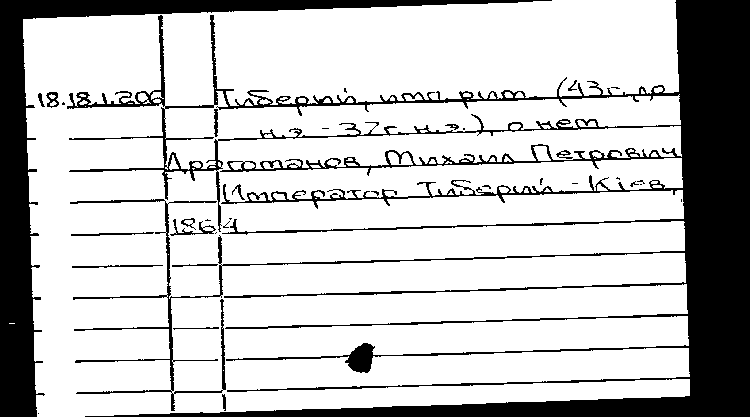 18.18.1.206 Тиберий, имп. рим. (43г. до
н.э. - 37г. н.э.), о нем
Драгоманов, Михаил Петрович
Император Тиберий. - Кіев,
1864